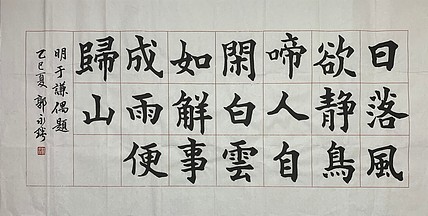 日落風
欲静鳥
啼人自
閑白雲
如解事
成雨便
歸山
明于謙偶題
乙巳夏郭永